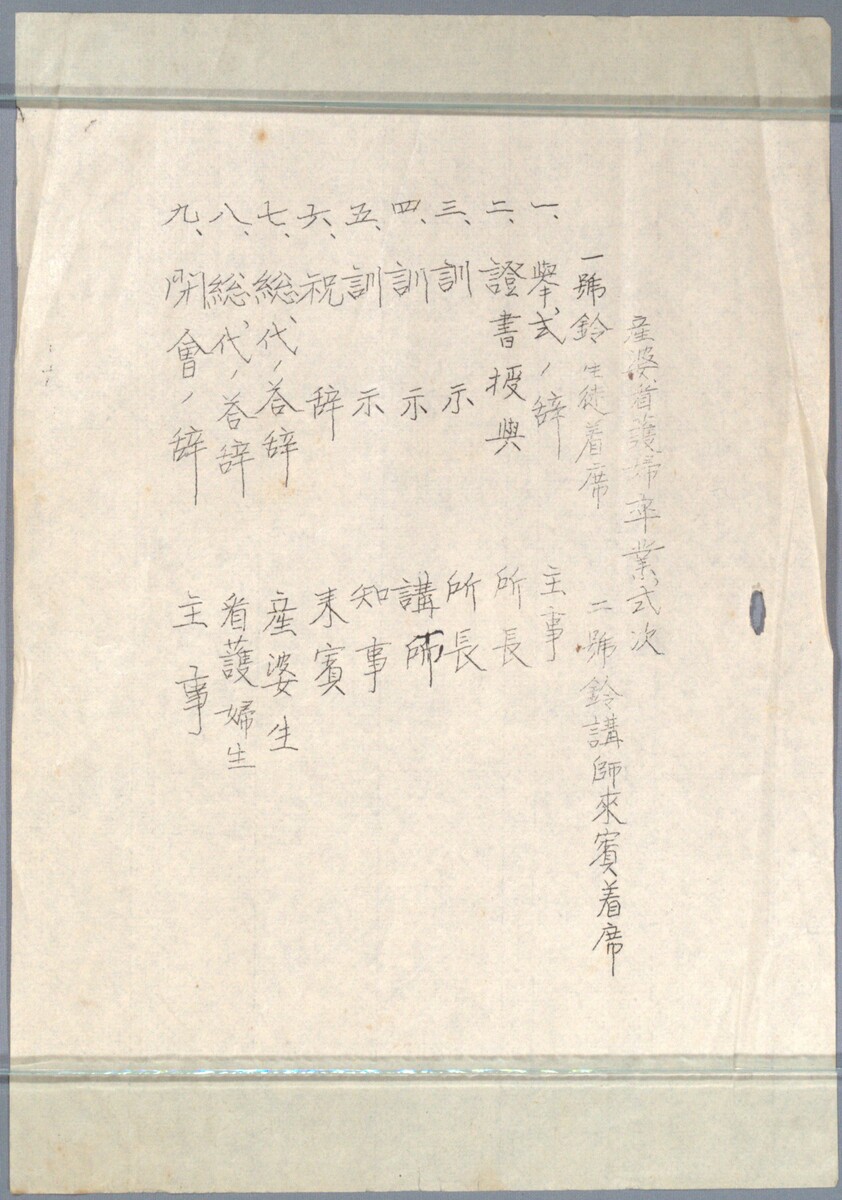 産婆看護婦卒業式次
一號鈴 生徒着席 二號鈴講師來賓着席
一、擧式ノ辞 主事
二、證書授與 所長
三、訓示 所長
四、訓示 講師
五、訓示 知事
六、祝辞 来賓
七、総代ノ答辞 産婆生
八、総代ノ答辞 看護婦生
九、閉會ノ辞 主事